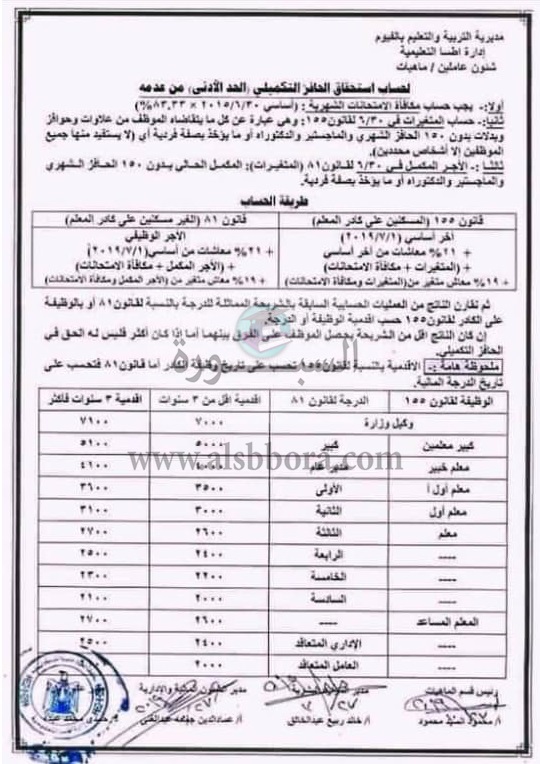 مديرية التربية والتعليم بالفيوم
إدارة اطسا التعليمية
شئون عاملين / ماهيات
لحساب استحقاق الحافز التكميلي (الحد الأدنى) من عدمه
أولا:- يجب حساب مكافأة الامتحانات الشهرية : (أساسي ٢٠١٥/٦/٣٠ × ٨٣,٣٣%)
ثانيا:- حساب المتغيرات في ٦/٣٠ لقانون١٥٥: وهي عبارة عن كل ما يتقاضاه الموظف من علاوات وحوافز
وبدلات بدون ١٥٠ الحافز الشهري والماجستير والدكتوراه أو ما يؤخذ بصفة فردية أي (لا يستفيد منها جميع
الموظفين إلا أشخاص محددين).
ثالثا:- الأجر المكمل في ٦/٣٠ لقانون ٨١ (المتغيرات): المكمل الحالي بدون ١٥٠ الحافز الشهري
والماجستير والدكتوراه أو ما يؤخذ بصفة فردية.
طريقة الحساب
قانون ١٥٥ (المسكنين علي كادر المعلم) قانون ٨١ (الغير مسكنين علي كادر المعلم)
أخر أساسي (٢٠١٩/٧/١) الأجر الوظيفي
+ ٢١% معاشات من أساسي + ٢١% معاشات من أساسي (٢٠١٩/٧/١)
+ (المتغيرات + مكافأة الامتحانات) + (الأجر المكمل + مكافأة الامتحانات)
+ ١٩% معاش متغير من(المتغيرات ومكافأة الامتحانات) + ١٩% معاش متغير من(الأجر المكمل ومكافأة الامتحانات)
ثم تقارن الناتج من العمليات الحسابية السابقة بالشريحة المماثلة للدرجة بالنسبة لقانون٨١ أو بالوظيفة
على الكادر لقانون١٥٥ حسب اقدمية الوظيفة أو الدرجة.
إن كان الناتج اقل من الشريحة يحصل الموظف علي الفرق بينهما أما إذا كان أكثر فليس له الحق في
الحافز التكميلي.
ملحوظة هامة :- الاقدمية بالنسبة لقانون١٥٥ تحسب على تاريخ وظيفة الكادر أما قانون٨١ فتحسب على
تاريخ الدرجة المالية.
السبورة
www.alsbbora.com
الوظيفة لقانون ١٥٥ الدرجة لقانون ٨١ اقدمية اقل من ٣ سنوات اقدمية ٣ سنوات فأكثر
وكيل وزارة ٧٠٠٠ ٧١٠٠
كبير معلمين كبير ٥٠٠٠ ٥١٠٠
معلم خبير مدير عام ٤٠٠٠ ٤١٠٠
معلم أول أ الأولى ٣٥٠٠ ٣٦٠٠
معلم أول الثانية ٣٠٠٠ ٣١٠٠
معلم الثالثة ٢٦٠٠ ٢٧٠٠
---- الرابعة ٢٤٠٠ ٢٥٠٠
---- الخامسة ٢٢٠٠ ٢٣٠٠
---- السادسة ٢٠٠٠ ٢١٠٠
المعلم المساعد ---- ٢٦٠٠ ٢٧٠٠
---- الإداري المتعاقد ٢٤٠٠ ٢٥٠٠
---- العامل المتعاقد ٢٠٠٠
رئيس قسم الماهيات مدير مدير الشئون المالية والإدارية
أ/ محمود السيد محمود أ/ خالد ربيع عبدالخالق